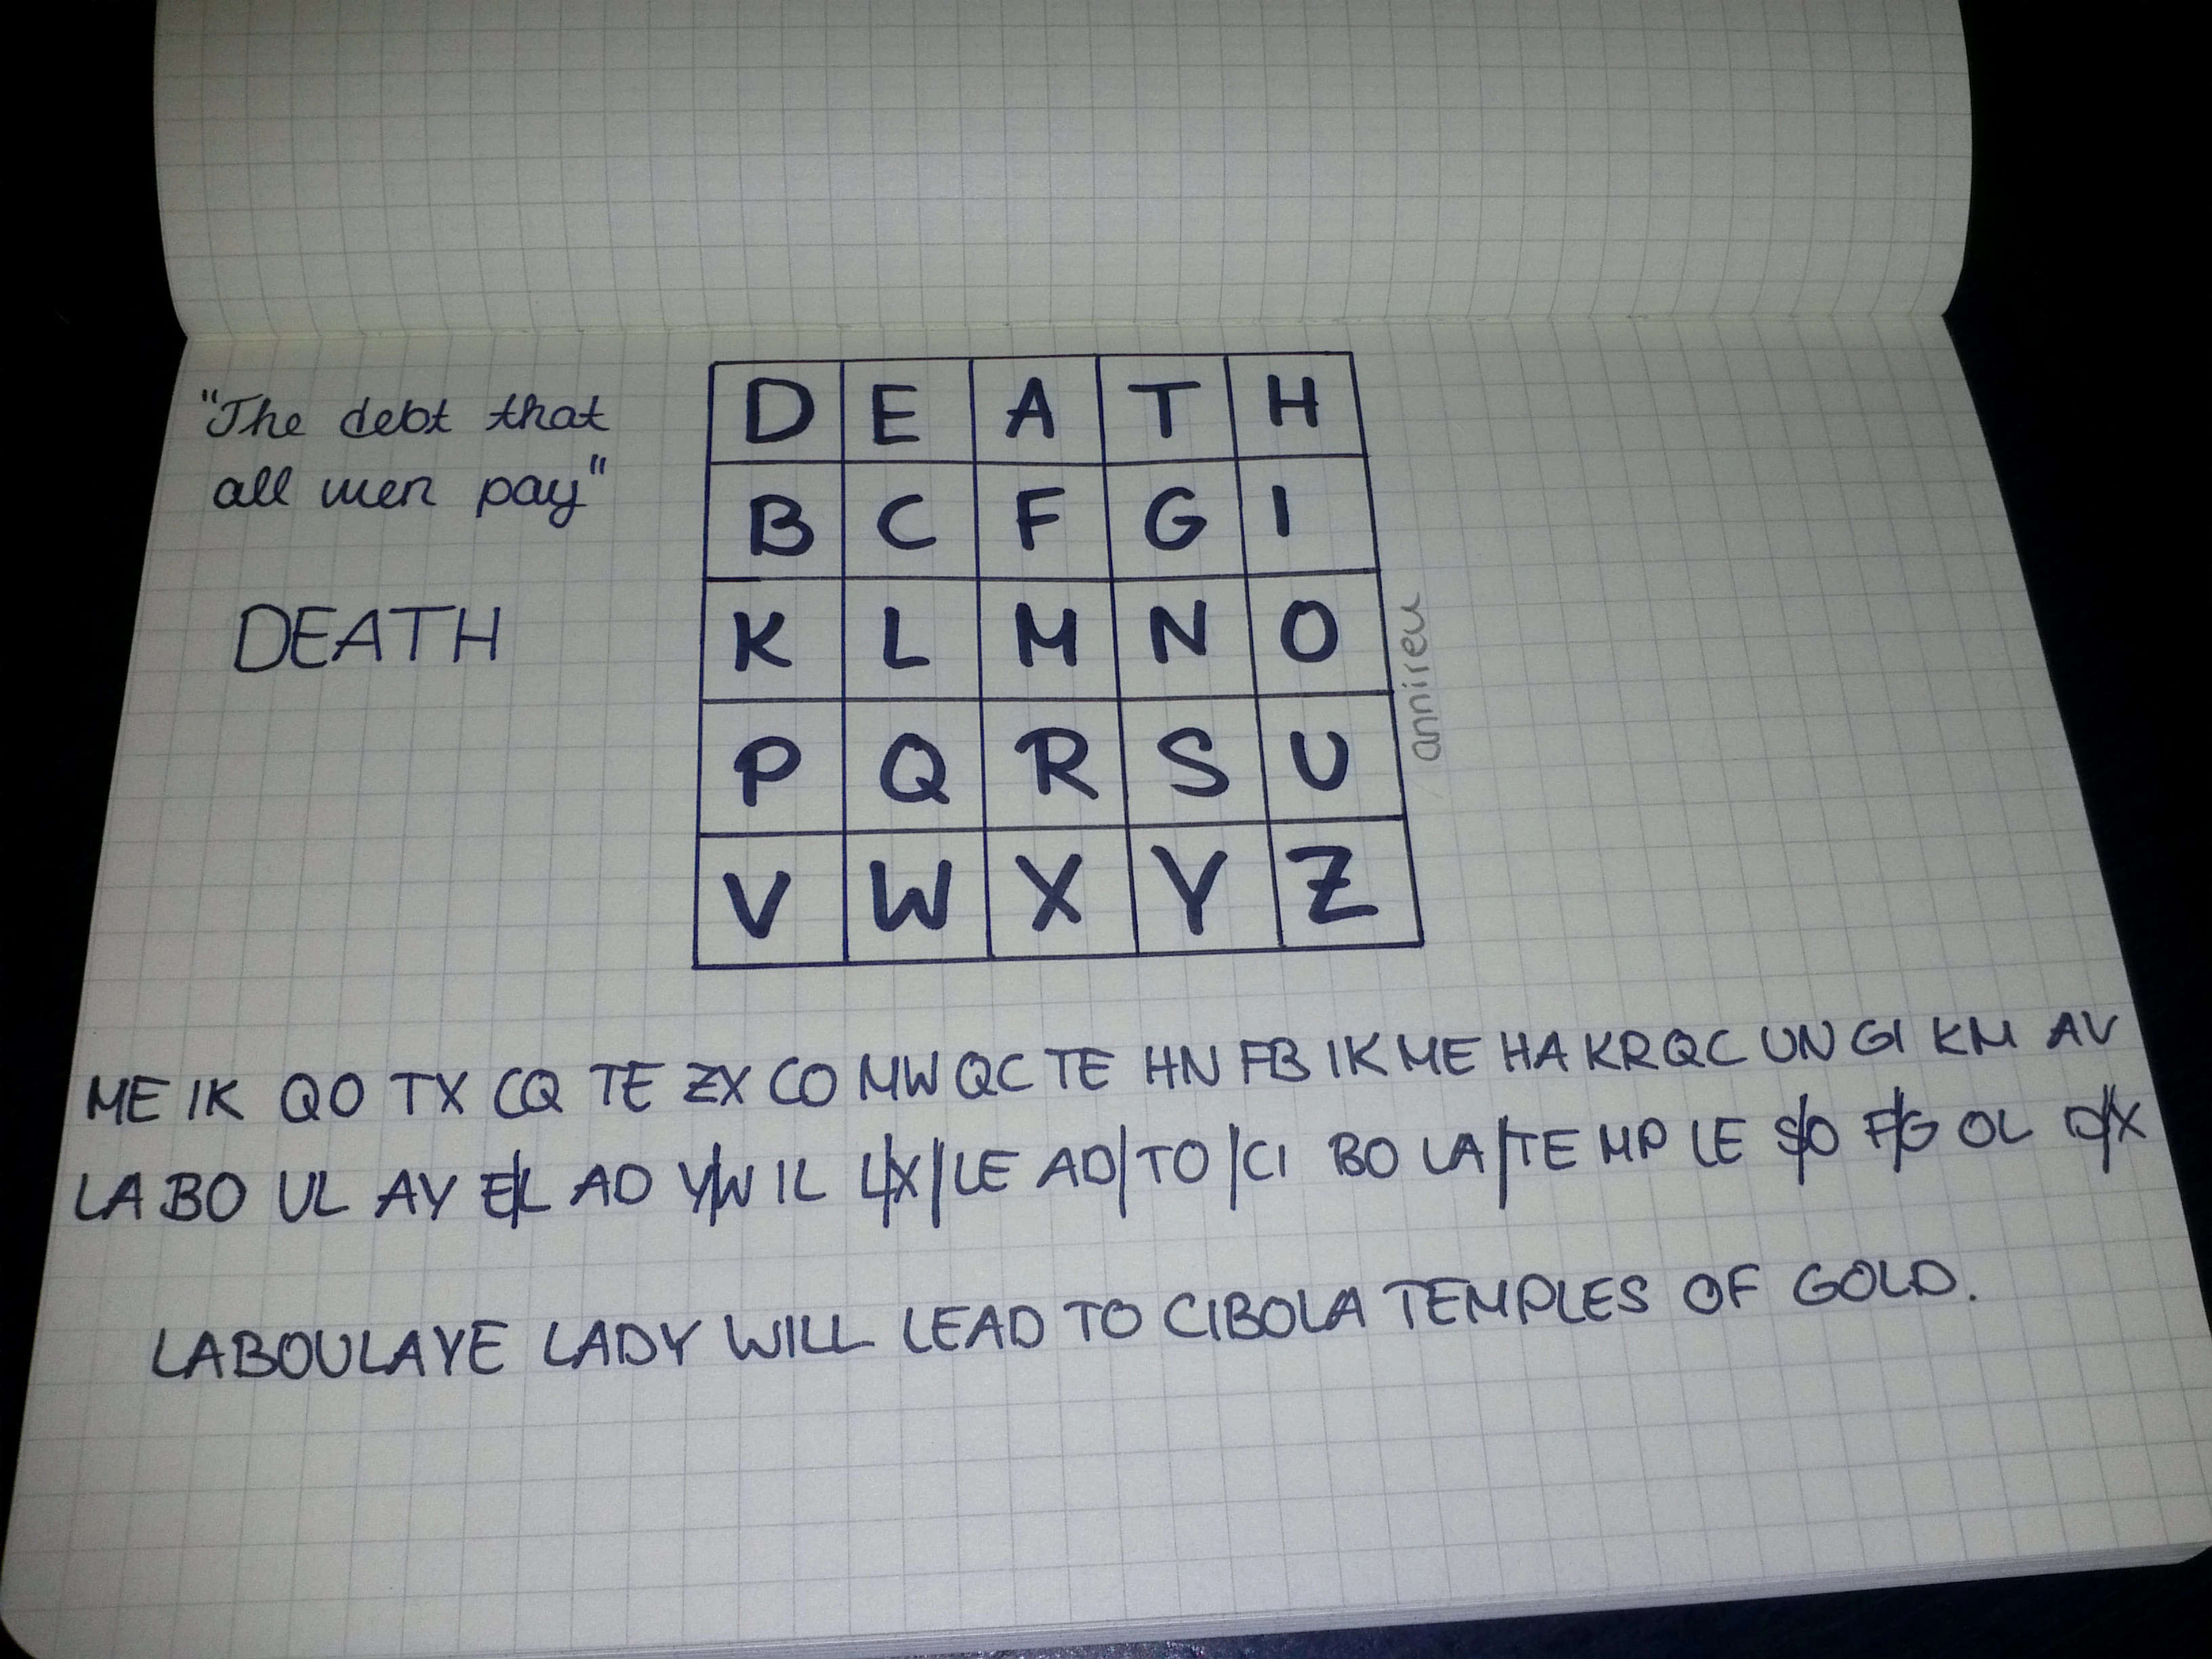 "The debt that
all men pay"
DEATH
D E A T H
B C F G I
K L M N O
P Q R S U
V W X Y Z
annireu
ME IK QO TX CQ TE ZX CO MW QC TE HN FB IK ME HA KR QC UN GI KM AV
LA BO UL AY E/L AD Y/W IL L/X/ LE AD/ TO /CI BO LA/ TE MP LE S/O F/G OL D/X
LABOULAYE LADY WILL LEAD TO CIBOLA TEMPLES OF GOLD.